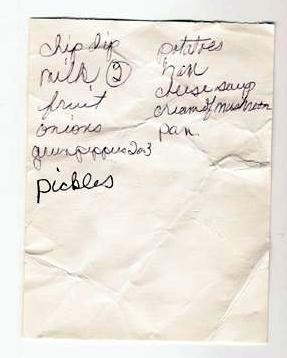 chip dip
milk (2)
fruit
onions
green peppers 2or3
pickles
potatoes
ham
cheese soup
cream of mushroom
pan